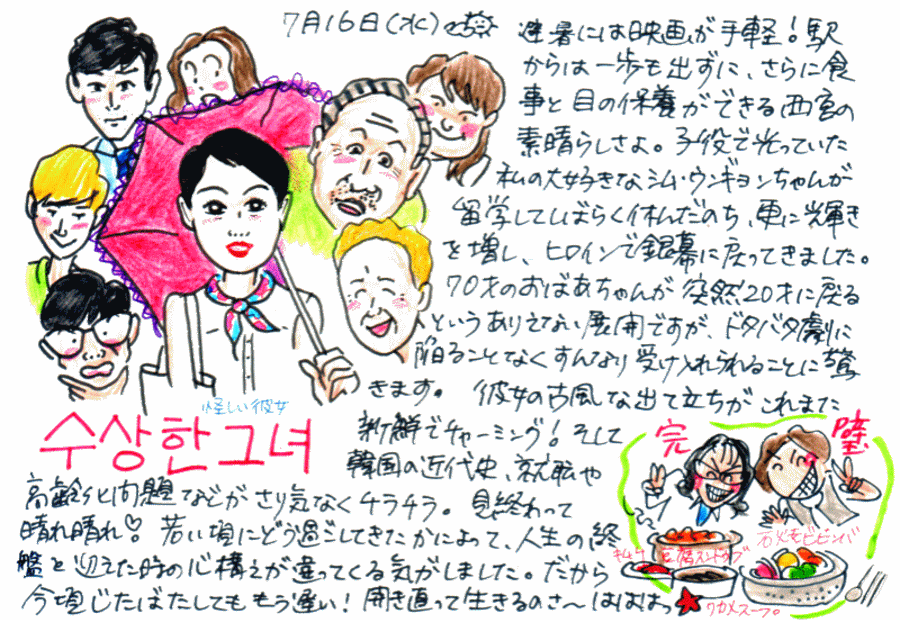 7月16日(水)
避暑には映画が手軽!駅
からは一歩も出ずに、さらに食
事と目の保養ができる西宮の
素晴らしさよ。子役で光っていた
私の大好きなシム・ウンギョンちゃんが
留学してしばらく休んだのち、更に輝き
を増し、ヒロインで銀幕に戻ってきました。
70才のおばあちゃんが突然20才に戻る
というありえない展開ですが、ドタバタ劇に
陥ることなくすんなり受け入れられることに驚
きます。彼女の古風な出で立ちがこれまた
新鮮でチャーミング!そして
韓国の近代史、就職や
高齢化問題などがさり気なくチラチラ。見終わって
晴れ晴れ♡。若い頃にどう過ごしてきたかによって、人生の終
盤を迎えた時の心構えが違ってくる気がしました。だから
今頃じたばたしてももう遅い!開き直って生きるのさ〜ははは
怪しい彼女
수상한그녀
完璧
キムチ
豆腐スンドゥブ
石火モビビンバ
ワカメスープ。